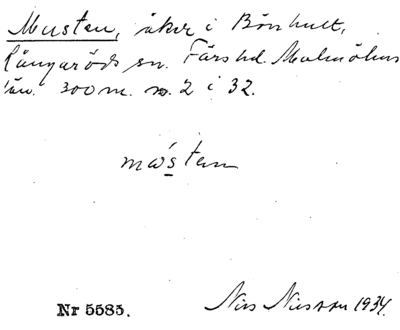 Musten, åker i Bönhult,
Långaröds sn. Färs hd. Malmöhus
län. 300 m. n. 2 i 32.
mɷ́sten
Nr 5585. Nils Nilsson 1934.